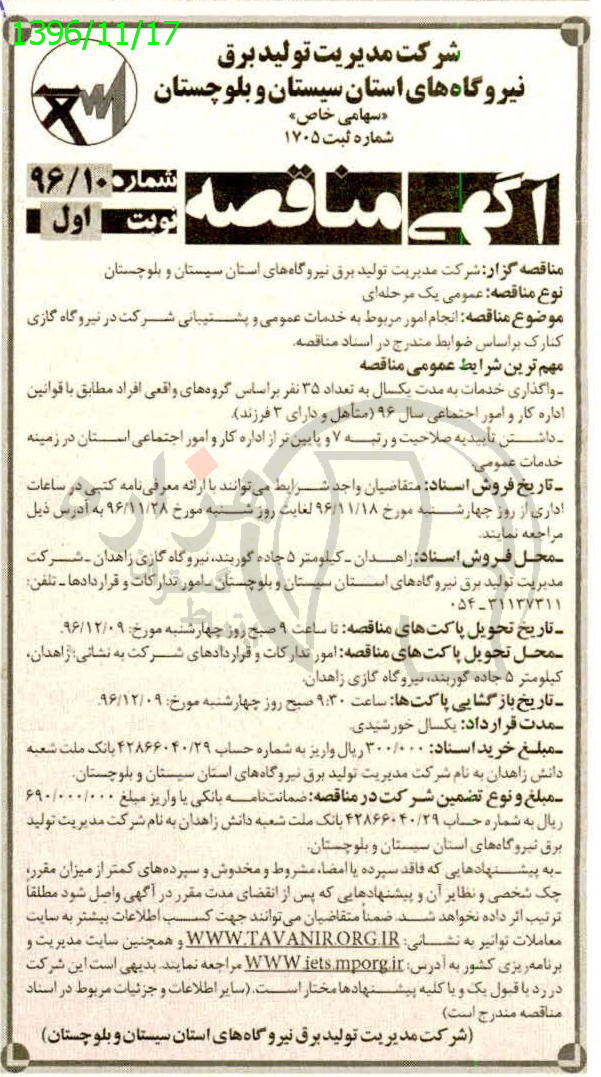 1396/11/17
شرکت مدیریت تولید برق
نیروگاه‌های استان سیستان و بلوچستان
«سهامی خاص»
شماره ثبت ۱۷۰۵
آگهی مناقصه
شماره ۹۶/۱۰
نوبت اول
مناقصه گزار: شرکت مدیریت تولید برق نیروگاه‌های استان سیستان و بلوچستان
نوع مناقصه: عمومی یک مرحله‌ای
موضوع مناقصه: انجام امور مربوط به خدمات عمومی و پشتیبانی شرکت در نیروگاه گازی
کنارک براساس ضوابط مندرج در اسناد مناقصه.
مهم ترین شرایط عمومی مناقصه
ـ واگذاری خدمات به مدت یکسال به تعداد ۳۵ نفر براساس گروه‌های واقعی افراد مطابق با قوانین
اداره کار و امور اجتماعی سال ۹۶ (متأهل و دارای ۳ فرزند).
ـ داشتن تأییدیه صلاحیت و رتبه ۷ و پایین تر از اداره کار و امور اجتماعی استان در زمینه
خدمات عمومی.
ـ تاریخ فروش اسناد: متقاضیان واجد شرایط می‌توانند با ارائه معرفی‌نامه کتبی در ساعات
اداری از روز چهارشنبه مورخ ۹۶/۱۱/۱۸ لغایت روز شنبه مورخ ۹۶/۱۱/۲۸ به آدرس ذیل
مراجعه نمایند.
ـ محل فروش اسناد: زاهدان ـ کیلومتر ۵ جاده گوربند، نیروگاه گازی زاهدان ـ شرکت
مدیریت تولید برق نیروگاه‌های استان سیستان و بلوچستان ـ امور تدارکات و قراردادها ـ تلفن:
۳۱۱۳۷۳۱۱ ـ ۰۵۴
ـ تاریخ تحویل پاکت‌های مناقصه: تا ساعت ۹ صبح روز چهارشنبه مورخ: ۹۶/۱۲/۰۹.
ـ محل تحویل پاکت‌های مناقصه: امور تدارکات و قراردادهای شرکت به نشانی: زاهدان،
کیلومتر ۵ جاده گوربند، نیروگاه گازی زاهدان.
ـ تاریخ بازگشایی پاکت‌ها: ساعت ۹:۳۰ صبح روز چهارشنبه مورخ: ۹۶/۱۲/۰۹.
ـ مدت قرارداد: یکسال خورشیدی.
ـ مبلغ خرید اسناد: ۳۰۰/۰۰۰ ریال واریز به شماره حساب ۴۲۸۶۶۰۴۰/۲۹ بانک ملت شعبه
دانش زاهدان به نام شرکت مدیریت تولید برق نیروگاه‌های استان سیستان و بلوچستان.
ـ مبلغ و نوع تضمین شرکت در مناقصه: ضمانت‌نامه بانکی یا واریز مبلغ ۶۹۰/۰۰۰/۰۰۰
ریال به شماره حساب ۴۲۸۶۶۰۴۰/۲۹ بانک ملت شعبه دانش زاهدان به نام شرکت مدیریت تولید
برق نیروگاه‌های استان سیستان و بلوچستان.
ـ به پیشنهادهایی که فاقد سپرده یا امضا، مشروط و مخدوش و سپرده‌های کمتر از میزان مقرر،
چک شخصی و نظایر آن و پیشنهادهایی که پس از انقضای مدت مقرر در آگهی واصل شود مطلقا
ترتیب اثر داده نخواهد شد. ضمناً متقاضیان می‌توانند جهت کسب اطلاعات بیشتر به سایت
معاملات توانیر به نشانی: WWW.TAVANIR.ORG.IR و همچنین سایت مدیریت و
برنامه‌ریزی کشور به آدرس: WWW.iets.mporg.ir مراجعه نمایند. بدیهی است این شرکت
در رد یا قبول یک و یا کلیه پیشنهادها مختار است. (سایر اطلاعات و جزئیات مربوط در اسناد
مناقصه مندرج است)
(شرکت مدیریت تولید برق نیروگاه‌های استان سیستان و بلوچستان)